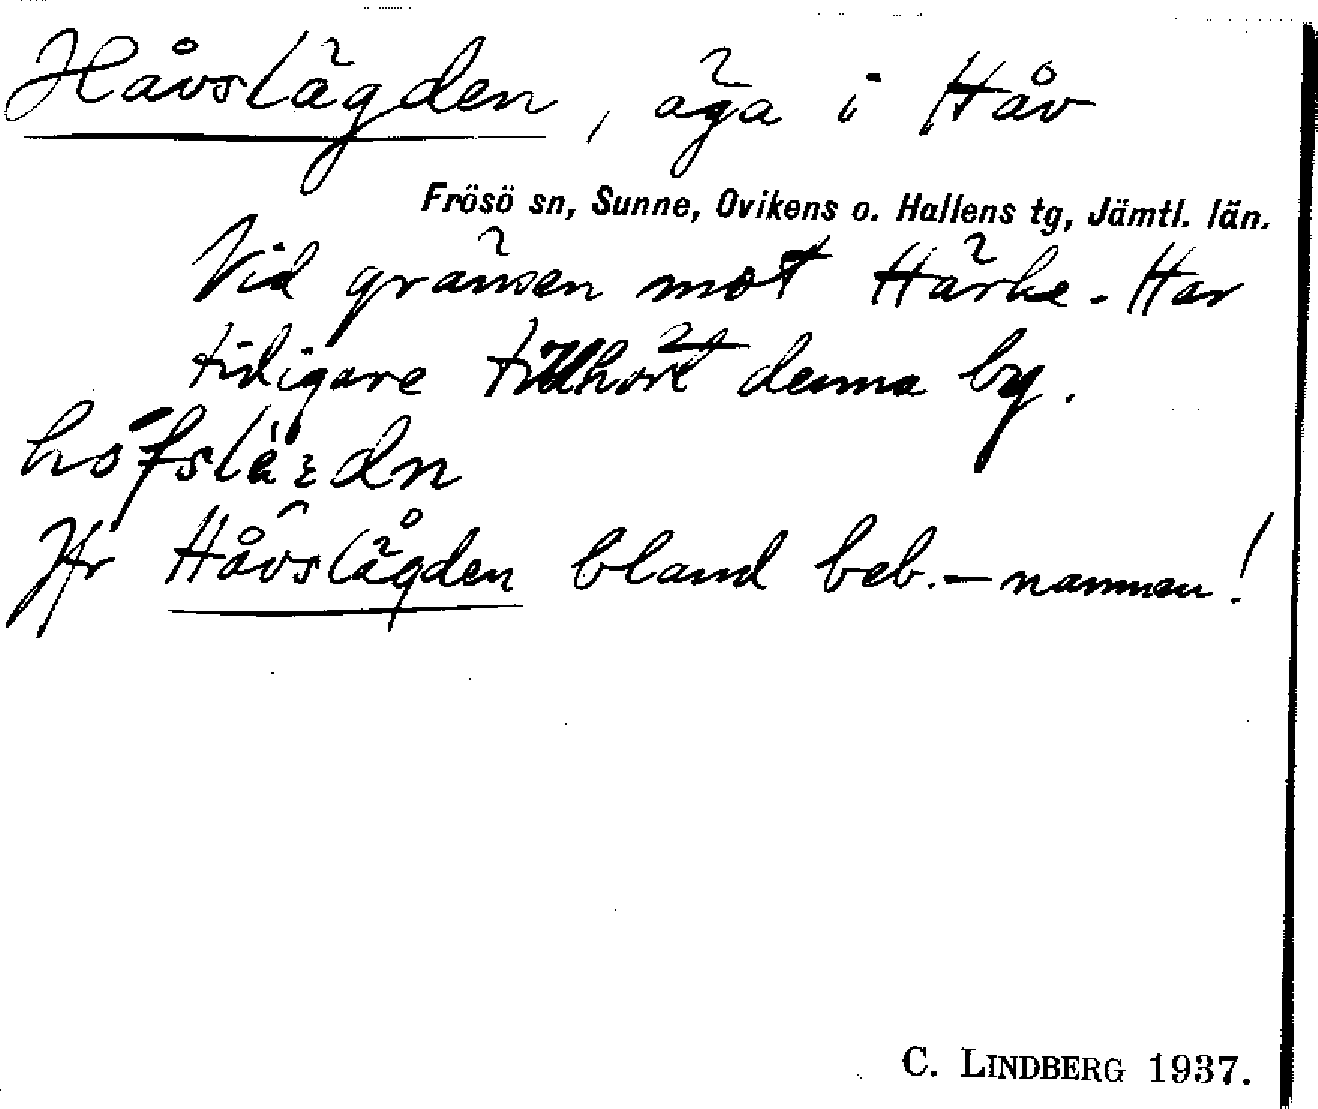 Håvslägden, äga i Håv
Frösö sn, Sunne, Ovikens o. Hallens tg, Jämtl. län.
Vid gränsen mot Härke. Har
tidigare tillhört denna by.
Jfr Håvslägden bland beb.-namnen!
C. LINDBERG 1937.